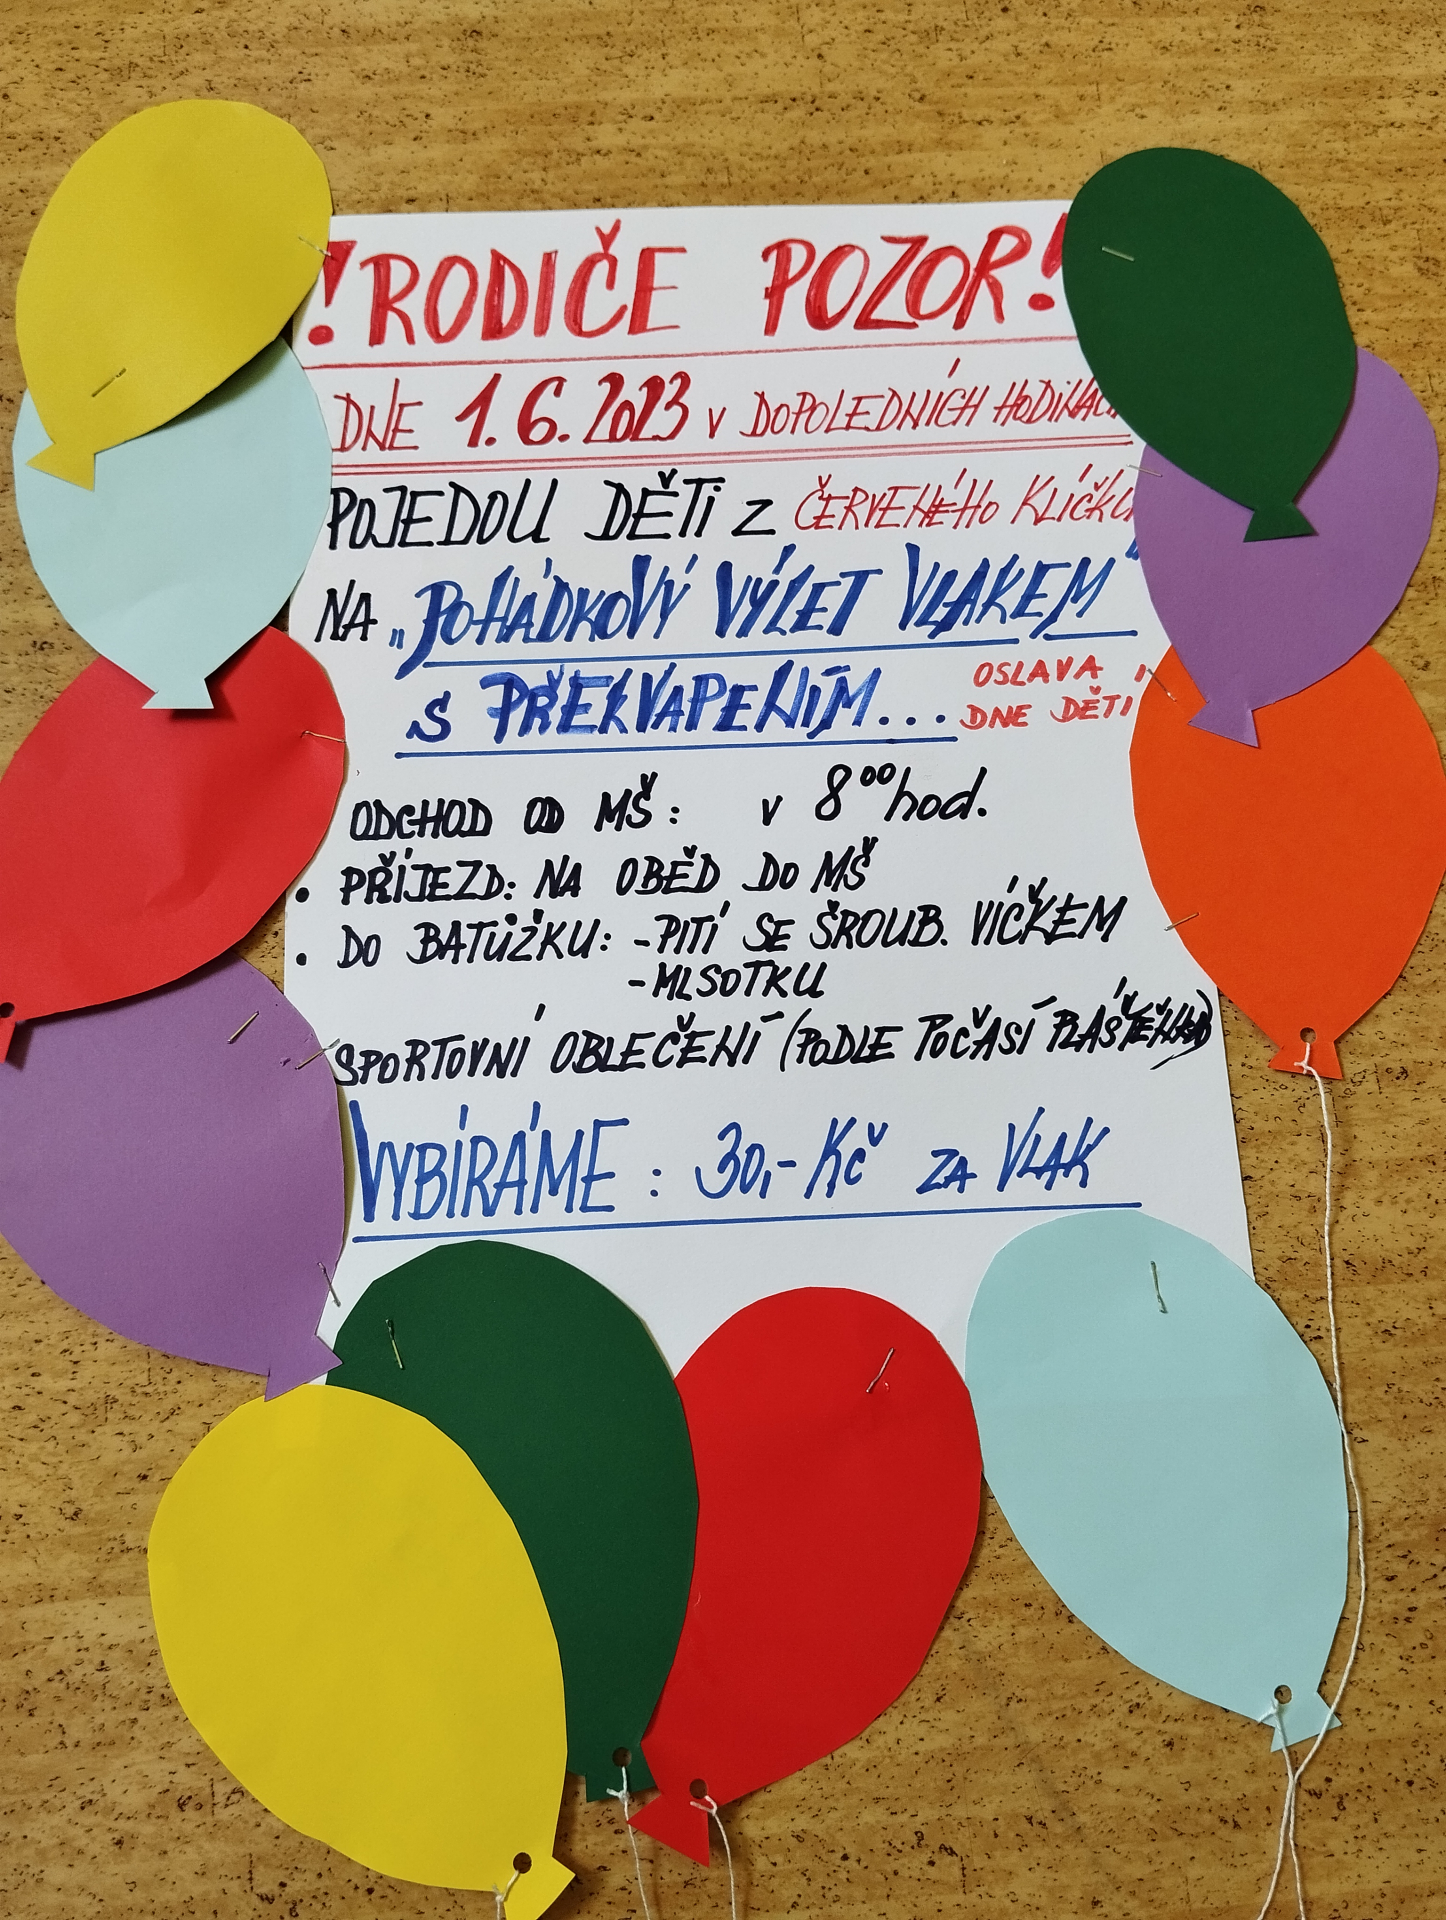 ! RODIČE POZOR!
DNE 1.6.2023 v DOPOLEDNÍCH HODINÁCH
POJEDOU DĚTI Z ČERVENÉHO KLÍČKU
NA „POHÁDKOVÝ VÝLET VLAKEM"
S PŘEKVAPENÍM...
OSLAVA
DNE DĚTÍ
ODCHOD OD MŠ: v 8⁰⁰ hod.
• PŘÍJEZD: NA OBĚD DO MŠ
• DO BATŮŽKU: -PITÍ SE ŠROUB. VÍČKEM
-MLSOTKU
SPORTOVNÍ OBLEČENÍ (PODLE POČASÍ PLÁŠTĚNKA)
VYBÍRÁME: 30,- Kč ZA VLAK